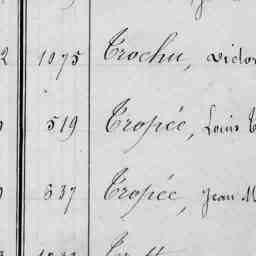 1075 Trochu, Victor
519 Tropée, Louis
537 Tropée, Jean M